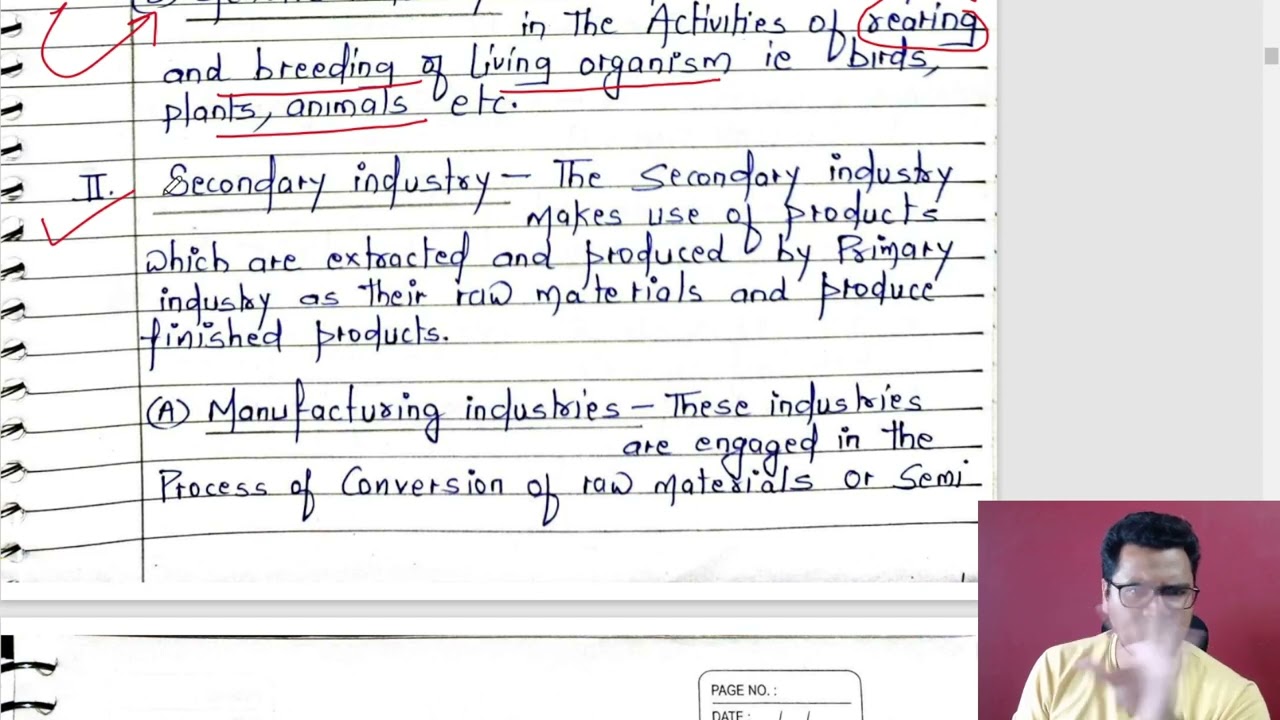 in the Activities of rearing
and breeding of living organism ie birds,
plants, animals etc.
II. Secondary industry - The Secondary industry
makes use of products
which are extracted and produced by Primary
industry as their raw materials and produce
finished products.
(A) Manufacturing industries - These industries
are engaged in the
Process of Conversion of raw materials or Semi
PAGE NO. :
DATE : / /